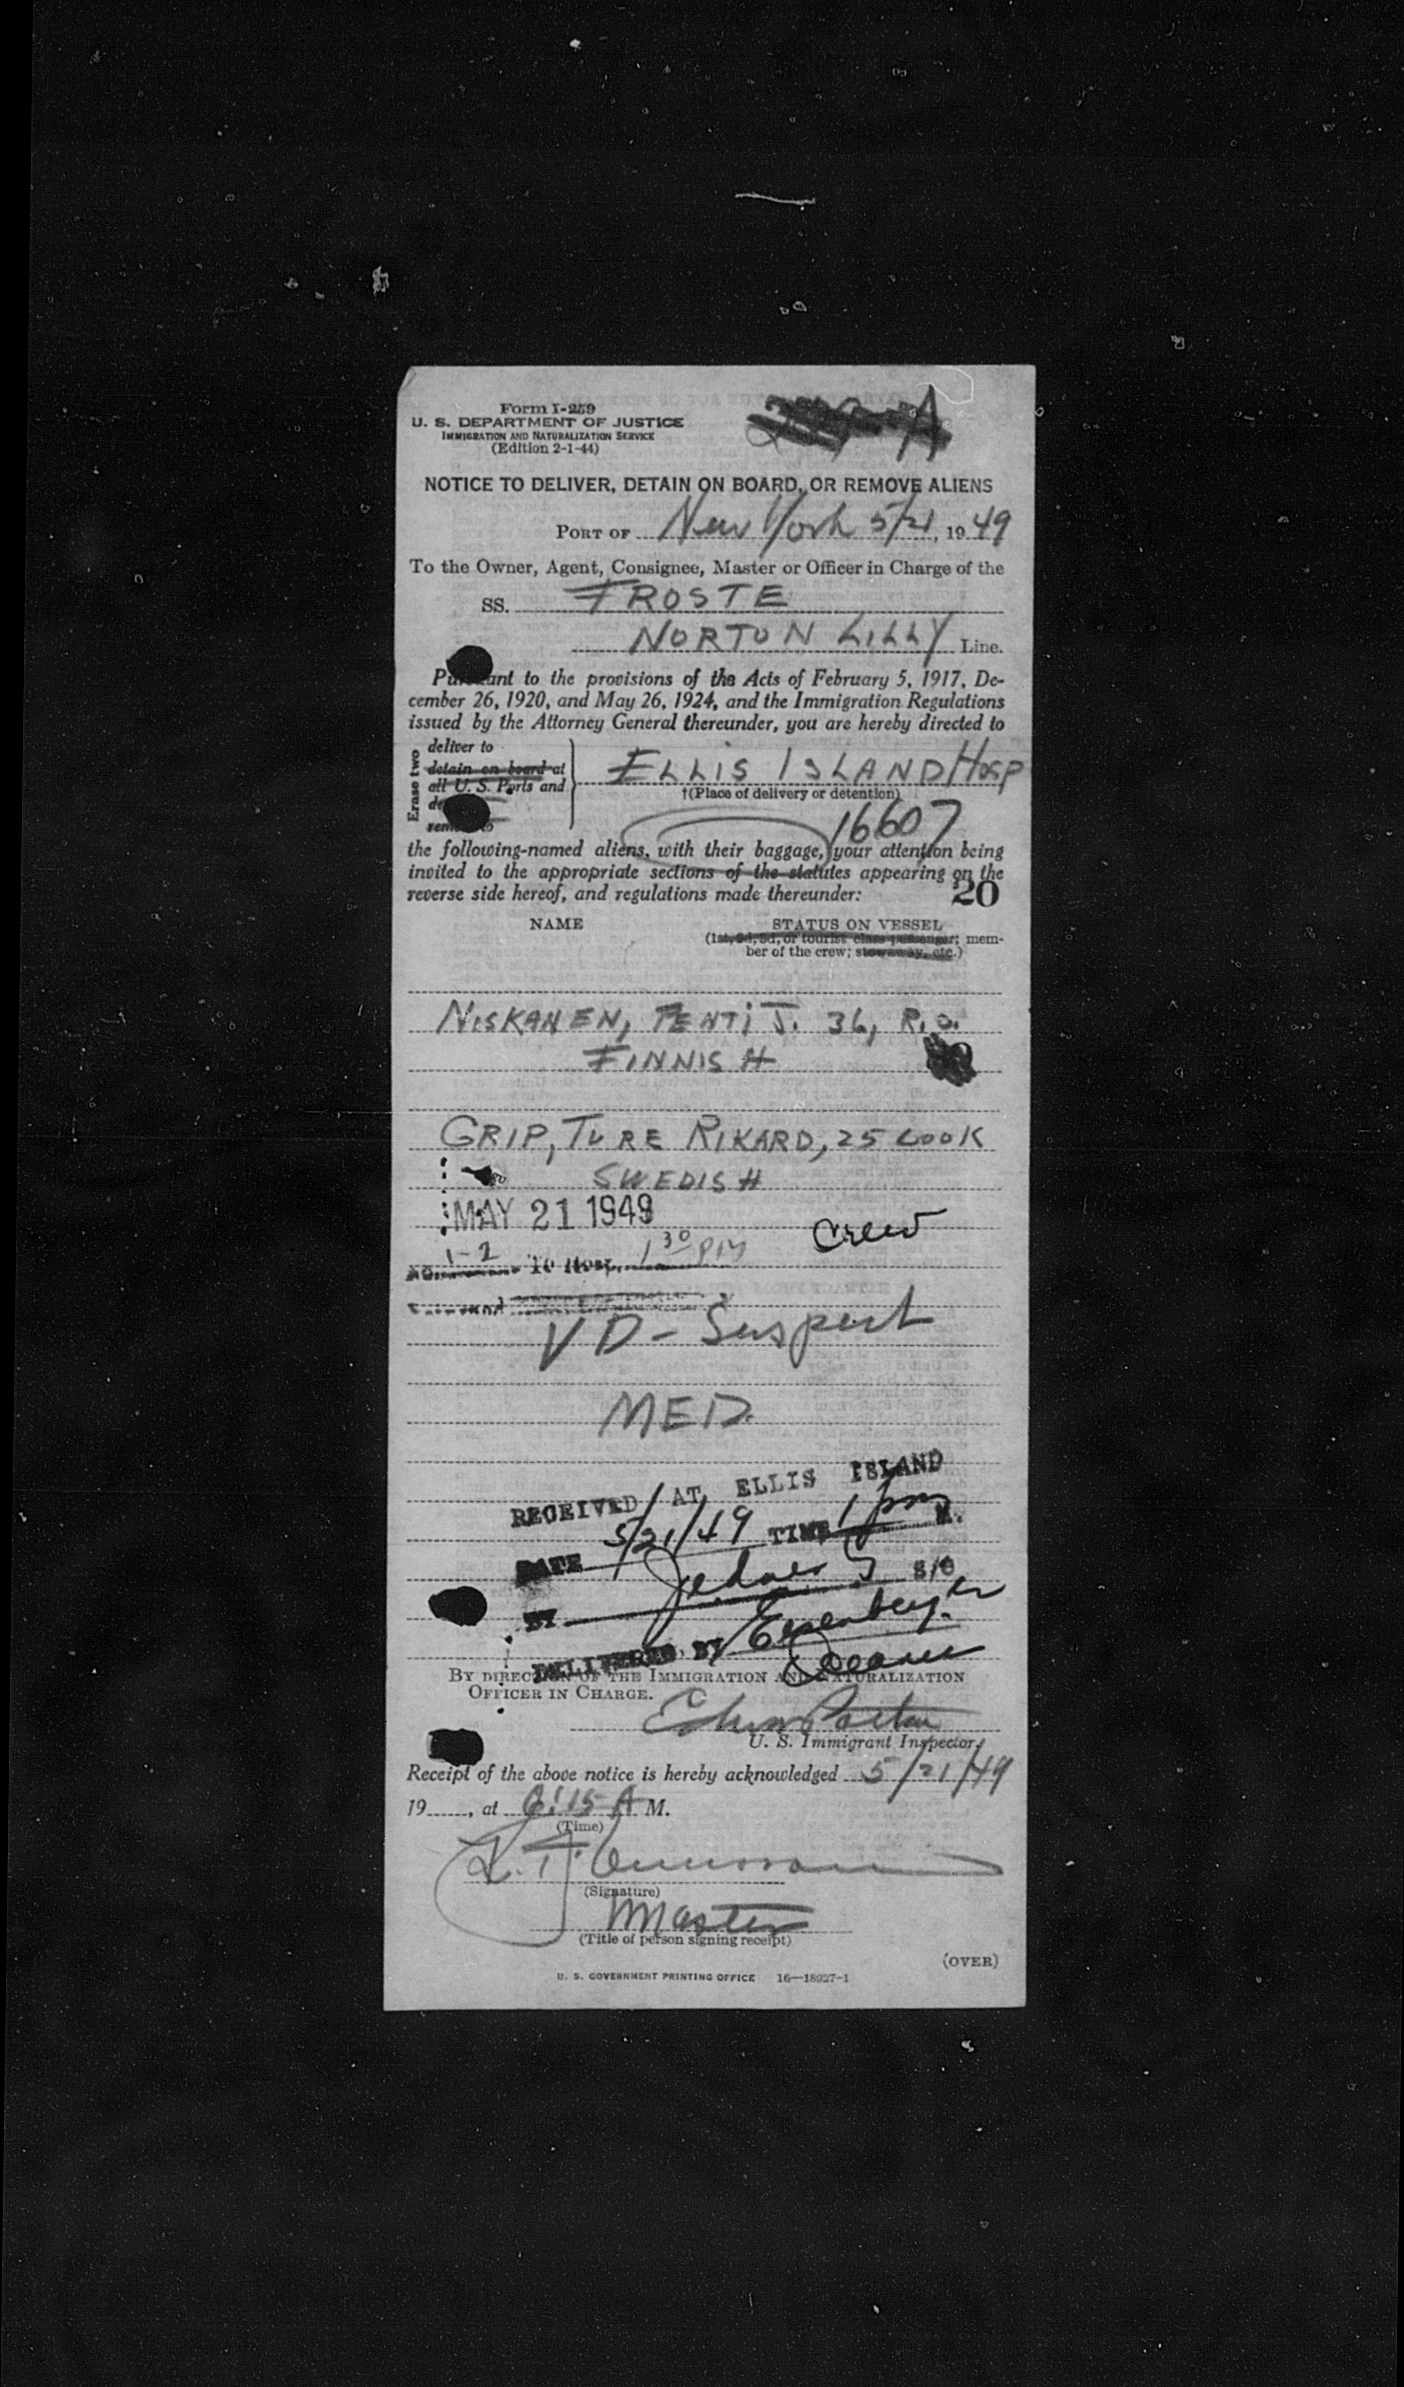 Form I-259
U. S. DEPARTMENT OF JUSTICE
IMMIGRATION AND NATURALIZATION SERVICE
(Edition 2-1-44)
NOTICE TO DELIVER, DETAIN ON BOARD, OR REMOVE ALIENS
PORT OF New York 5/21, 19 49
To the Owner, Agent, Consignee, Master or Officer in Charge of the
SS. FROSTE
NORTON LILLY Line.
Pursuant to the provisions of the Acts of February 5, 1917, De-
cember 26, 1920, and May 26, 1924, and the Immigration Regulations
issued by the Attorney General thereunder, you are hereby directed to
Erase two
deliver to
detain on board at
all U. S. Ports and
ELLIS ISLAND HOSP
†(Place of delivery or detention)
16607
the following-named aliens, with their baggage, your attention being
invited to the appropriate sections of the statutes appearing on the
reverse side hereof, and regulations made thereunder:
20
NAME STATUS ON VESSEL
(1st, 2d, 3d, or tourist class passenger; mem-
ber of the crew; stowaway, etc.)
NISKANEN, PENTI J. 36, R.O.
FINNISH
GRIP, TURE RIKARD, 25 COOK
SWEDISH
MAY 21 1949
Crew
1-2 To Hosp. 1 30 PM
VD - Suspect
MED.
RECEIVED AT ELLIS ISLAND
DATE 5/21/49 TIME 1 pm M.
BY S/O
DELIVERED BY
BY DIRECTION OF THE IMMIGRATION AND NATURALIZATION
OFFICER IN CHARGE.
U. S. Immigrant Inspector.
Receipt of the above notice is hereby acknowledged 5/21/49
19, at 6:15 A M.
(Time)
(Signature)
Master
(Title of person signing receipt)
(OVER)
U. S. GOVERNMENT PRINTING OFFICE 16—18927-1